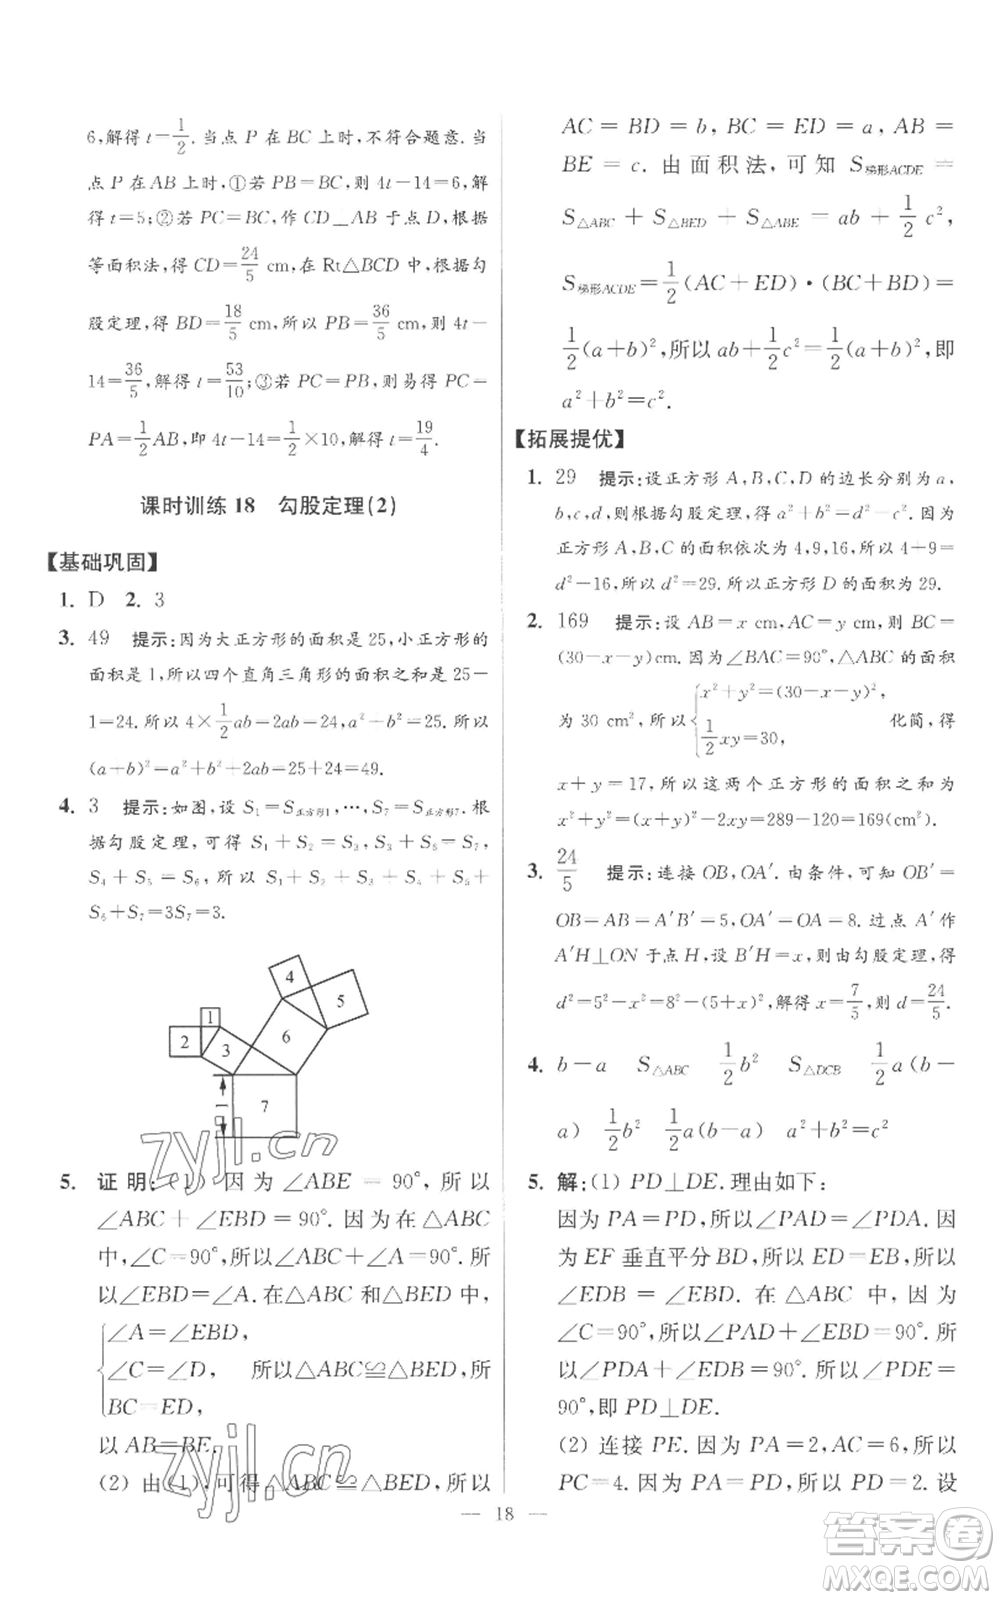 6,解得 t=1/2. 当点 P 在 BC 上时,不符合题意. 当
点 P 在 AB 上时,①若 PB=BC,则 4t-14=6,解
得 t=5;②若 PC=BC,作 CD⊥AB 于点 D,根据
等面积法,得 CD=24/5 cm,在 Rt△BCD 中,根据勾
股定理,得 BD=18/5 cm,所以 PB=36/5 cm,则 4t-
14=36/5,解得 t=53/10;③若 PC=PB,则易得 PC=
PA=1/2AB,即 4t-14=1/2×10,解得 t=19/4.
课时训练 18 勾股定理(2)
【基础巩固】
1. D 2. 3
3. 49 提示:因为大正方形的面积是 25,小正方形的
面积是 1,所以四个直角三角形的面积是 25-
1=24. 所以 4×1/2ab=2ab=24,a²+b²=25. 所以
(a+b)²=a²+b²+2ab=25+24=49.
4. 3 提示:如图,设 S₁=S正方形1,…,S₇=S正方形7. 根
据勾股定理,可得 S₁+S₂=S₃,S₄+S₅=S₆,
S₃+S₆=S₇,所以 S₁+S₂+S₃+S₄+S₅+
S₆+S₇=3S₇=3.
4
5
1
2
3
6
1
7
zyjl.cn
5. 证明:(1) 因为∠ABE=90°,所以
∠ABC+∠EBD=90°. 因为在△ABC
中,∠C=90°,所以∠ABC+∠A=90°. 所
以∠EBD=∠A. 在△ABC 和△BED 中,
∠A=∠EBD,
∠C=∠D, 所以△ABC≌△BED,所
BC=ED,
以 AB=BE.
zyjl.cn
(2) 由(1),可得△ABC≌△BED,所以
AC=BD=b,BC=ED=a,AB=
BE=c. 由面积法,可知 S梯形ACDE=
S△ABC+S△BED+S△ABE=ab+1/2c²,
S梯形ACDE=1/2(AC+ED)·(BC+BD)=
1/2(a+b)²,所以 ab+1/2c²=1/2(a+b)²,即
a²+b²=c².
【拓展提优】
1. 29 提示:设正方形 A,B,C,D 的边长分别为 a,
b,c,d,则根据勾股定理,得 a²+b²=d²-c². 因为
正方形 A,B,C 的面积依次为 4,9,16,所以 4+9=
d²-16,所以 d²=29. 所以正方形 D 的面积为 29.
2. 169 提示:设 AB=x cm,AC=y cm,则 BC=
(30-x-y)cm. 因为∠BAC=90°,△ABC 的面积
为 30 cm²,所以{x²+y²=(30-x-y)², 1/2xy=30, 化简,得
x+y=17,所以这两个正方形的面积之和为
x²+y²=(x+y)²-2xy=289-120=169(cm²).
3. 24/5 提示:连接 OB,OA′. 由条件,可知 OB′=
OB=AB=A′B′=5,OA′=OA=8. 过点 A′作
A′H⊥ON 于点 H,设 B′H=x,则由勾股定理,得
d²=5²-x²=8²-(5+x)²,解得 x=7/5,则 d=24/5.
4. b-a S△ABC 1/2b² S△DCB 1/2a(b-
a) 1/2b² 1/2a(b-a) a²+b²=c²
5. 解:(1) PD⊥DE. 理由如下:
因为 PA=PD,所以∠PAD=∠PDA. 因
为 EF 垂直平分 BD,所以 ED=EB,所以
∠EDB=∠EBD. 在△ABC 中,因为
∠C=90°,所以∠PAD+∠EBD=90°. 所
以∠PDA+∠EDB=90°. 所以∠PDE=
90°,即 PD⊥DE.
(2) 连接 PE. 因为 PA=2,AC=6,所以
PC=4. 因为 PA=PD,所以 PD=2. 设
— 18 —
答案圈
MXQE.COM